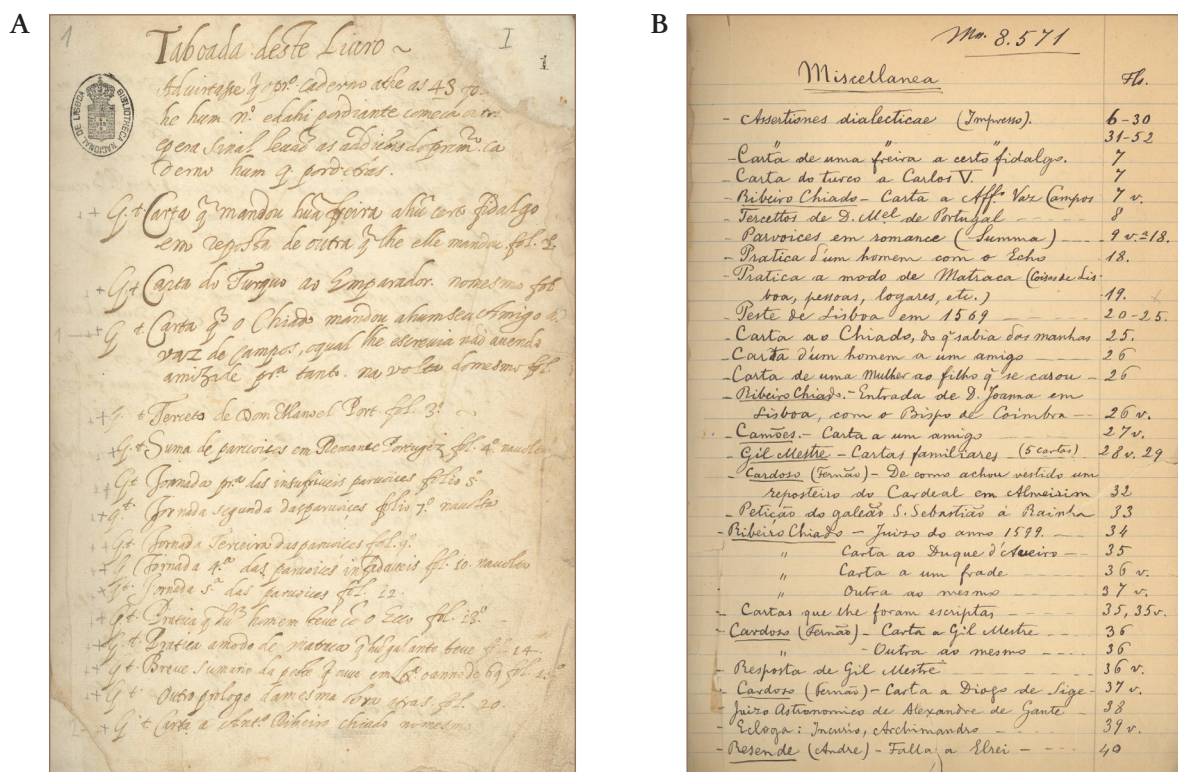 A
1
I
1
Taboada deste Liuro ~
Aduirtasse q̃ o pr.º caderno athe as 43 fo.
he hum n.º e dahi pordiante comeca outro
BIBLIOTHECA NACIONAL DE LISBOA
hum q. por detras.
G. + Carta q̃ mandou hũa freira a hũ certo fidalgo
em reposta de outra q̃ lhe elle mandou fol. 3.
G + Carta do Turquo ao Emparador. nomesmo fol
G + Carta q̃ o Chiado mandou ahum seu Amigo a.
vaz de Campos, oqual lhe escreuia naõ auendo
amizade pr.ª tanto. na volta domesmo fol.
G. + Terceto de Dom Manoel Port. fol. 3º
G. + Suma de paruoices em Remance Portuguez fol. 4.º nauolta
G. Jornada pr.ª das insufriueis paruoices folio 5º
G. Jornada segunda das paruoices folio 7.º nauolta
G. Jornada Terceira das paruoices fol. 9.
G Jornada 4.ª das paruoices infadaueis fol. 10. nauolta
G. Jornada 5.ª das paruoices fol. 12.
G. Pratica q̃ hũ homem teue cõ o Ecco fol. 13º
G. + Pratica amodo de matraca q̃ hũ galante teue f. 14.
G + Breue Sumario da peste q̃ ouue em Lx.ª oanno de 69 fol.
G + Outro prologo da mesma obra atras. fol. 20.
G + Carta a Ant.º Ribeiro chiado nomesmo
B
Mss. 8.571
Miscellanea Fls.
- Assertiones dialecticae (Impresso). 6-30
" " 31-52
- Carta de uma freira a certo fidalgo. 7
- Carta do turco a Carlos V. 7
- Ribeiro Chiado - Carta a Aff.º Vaz Campos 7 v.
- Tercettos de D. Mel de Portugal 8
- Parvoices em romance (Summa) 9 v.-18.
- Pratica d'um homem com o Echo 18.
- Pratica a modo de Matraca (Coisas de Lis-
boa, pessoas, logares, etc.) 19.
- Peste de Lisboa em 1569 20-25.
- Carta ao Chiado, do q̃ sabia das manhas 25.
- Carta d'um homem a um amigo 26
- Carta de uma mulher ao filho q̃ se casou 26
- Ribeiro Chiado. - Entrada de D. Joanna em
Lisboa, com o Bispo de Coimbra 26 v.
- Camões. - Carta a um amigo 27 v.
- Gil Mestre - Cartas familiares (5 cartas) 28 v. 29
- Cardoso (Fernão) - De como achou vestido um
reposteiro do Cardeal em Almeirim 32
- Petição do galeão S. Sebastião à Rainha 33
- Ribeiro Chiado - Juizo do anno 1599. 34
" Carta ao Duque d'Aveiro 35
" Carta a um frade 36 v.
" Outra ao mesmo 37 v.
- Cartas que lhe foram escriptas 35, 35 v.
- Cardoso (Fernão) - Carta a Gil Mestre 36
" - Outra ao mesmo 36
- Resposta de Gil Mestre 36 v.
- Cardoso (Fernão) - Carta a Diogo de Sige 37 v.
- Juizo Astronomico de Alexandre de Gante 38
- Ecloga: Incurio, Archimandro 39 v.
- Resende (Andre) - Falla a Elrei 40